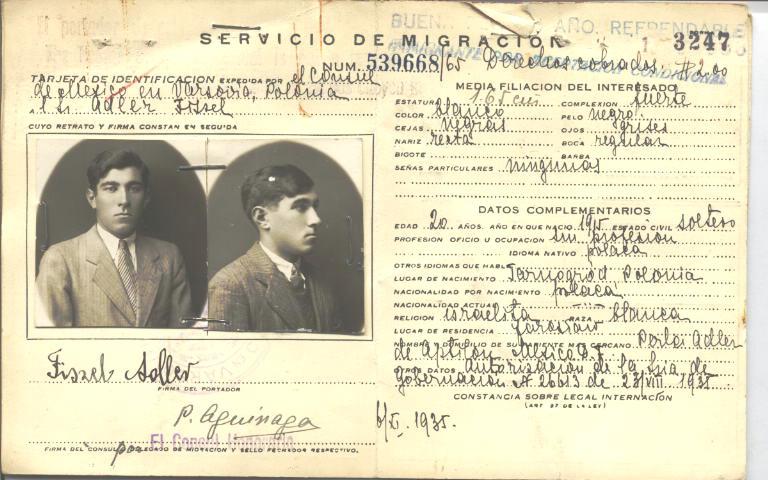 SERVICIO DE MIGRACION
BUEN AÑO, REFRENDABLE
3247
NUM. 539668/65 Derechos cobrados. $2.00
TARJETA DE IDENTIFICACION EXPEDIDA POR el Consul
de Mexico en Varsovia, Polonia
Adler Fiszel
CUYO RETRATO Y FIRMA CONSTAN EN SEGUIDA
Fiszel Adler
FIRMA DEL PORTADOR
P. Aguinaga
El Consul Honorario
FIRMA DEL CONSUL O DELEGADO DE MIGRACION Y SELLO FECHADOR RESPECTIVO.
MEDIA FILIACION DEL INTERESADO
ESTATURA 165 cm COMPLEXION fuerte
COLOR blanco PELO negro
CEJAS negras OJOS grises
NARIZ recta BOCA regular
BIGOTE BARBA
SEÑAS PARTICULARES ningunas
DATOS COMPLEMENTARIOS
EDAD 20 AÑOS. AÑO EN QUE NACIO 1915 ESTADO CIVIL soltero
PROFESION OFICIO U OCUPACION sin profesion
IDIOMA NATIVO polaca
OTROS IDIOMAS QUE HABLA
LUGAR DE NACIMIENTO Tarnogrod Polonia
NACIONALIDAD POR NACIMIENTO polaca
NACIONALIDAD ACTUAL
RELIGION israelita RAZA blanca
LUGAR DE RESIDENCIA Jaroslaw
NOMBRE Y DOMICILIO DE SU PARIENTE MAS CERCANO Perla Adler
de Mexico D.F.
OTROS DATOS Autorizacion de la Sria de
Gobernacion A 26613 de 23/VIII 1935
CONSTANCIA SOBRE LEGAL INTERNACION
(ART 57 DE LA LEY)
6/XI. 1935.